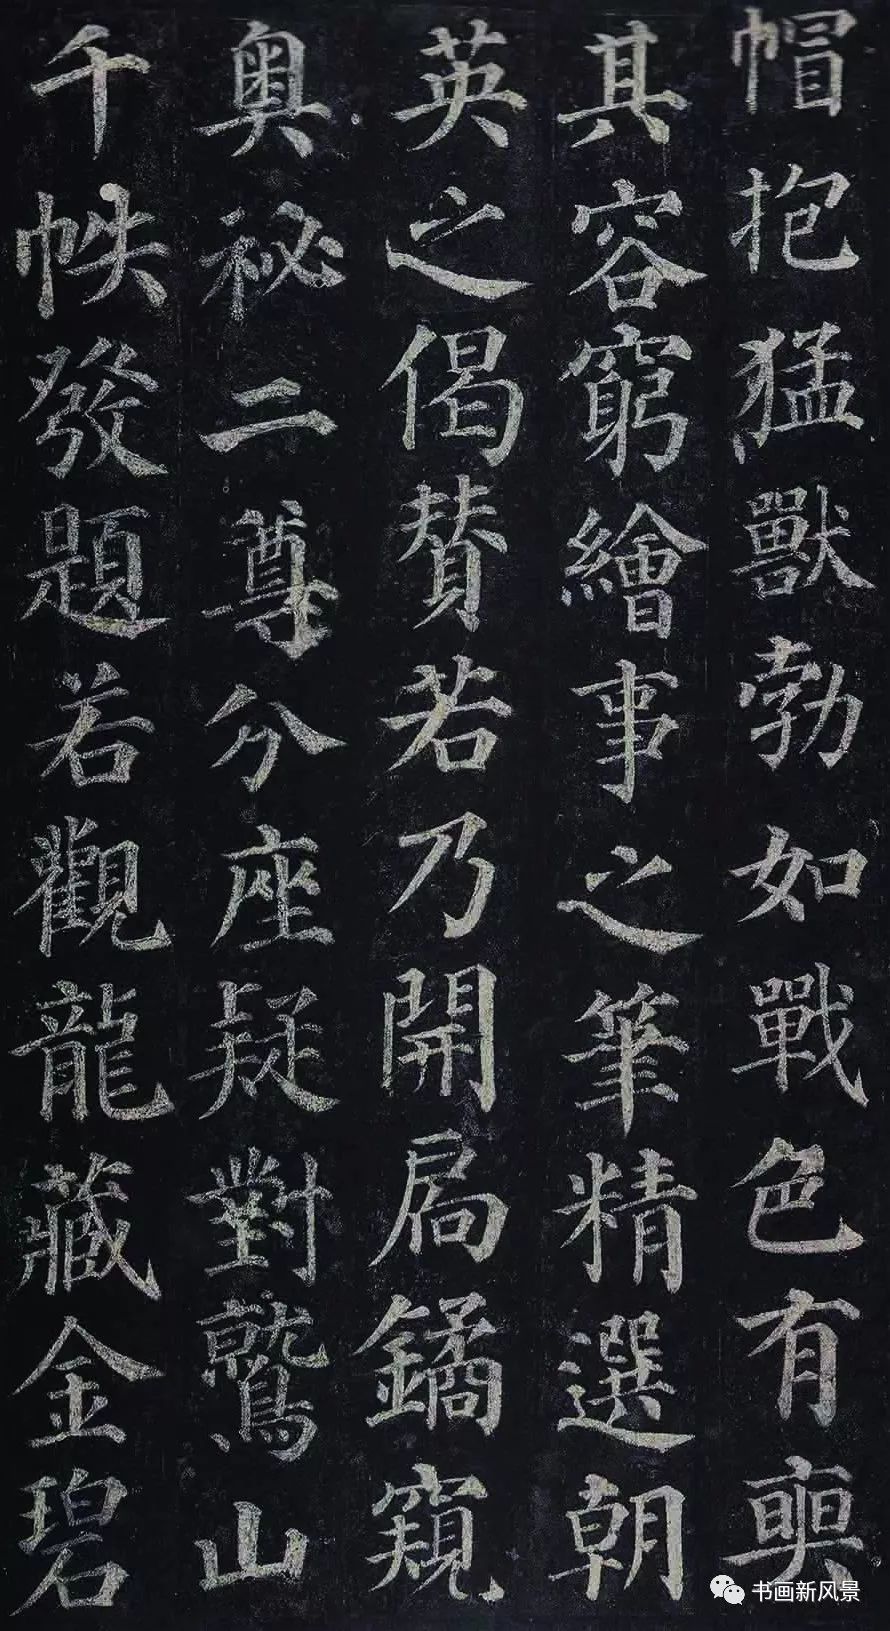 帽抱猛獸勃如戰色有奭
其容窮繪事之筆精選朝
英之偈賛若乃開扃鐍窺
奥祕二尊分座疑對鷲山
千帙發題若觀龍藏金碧
书画新风景